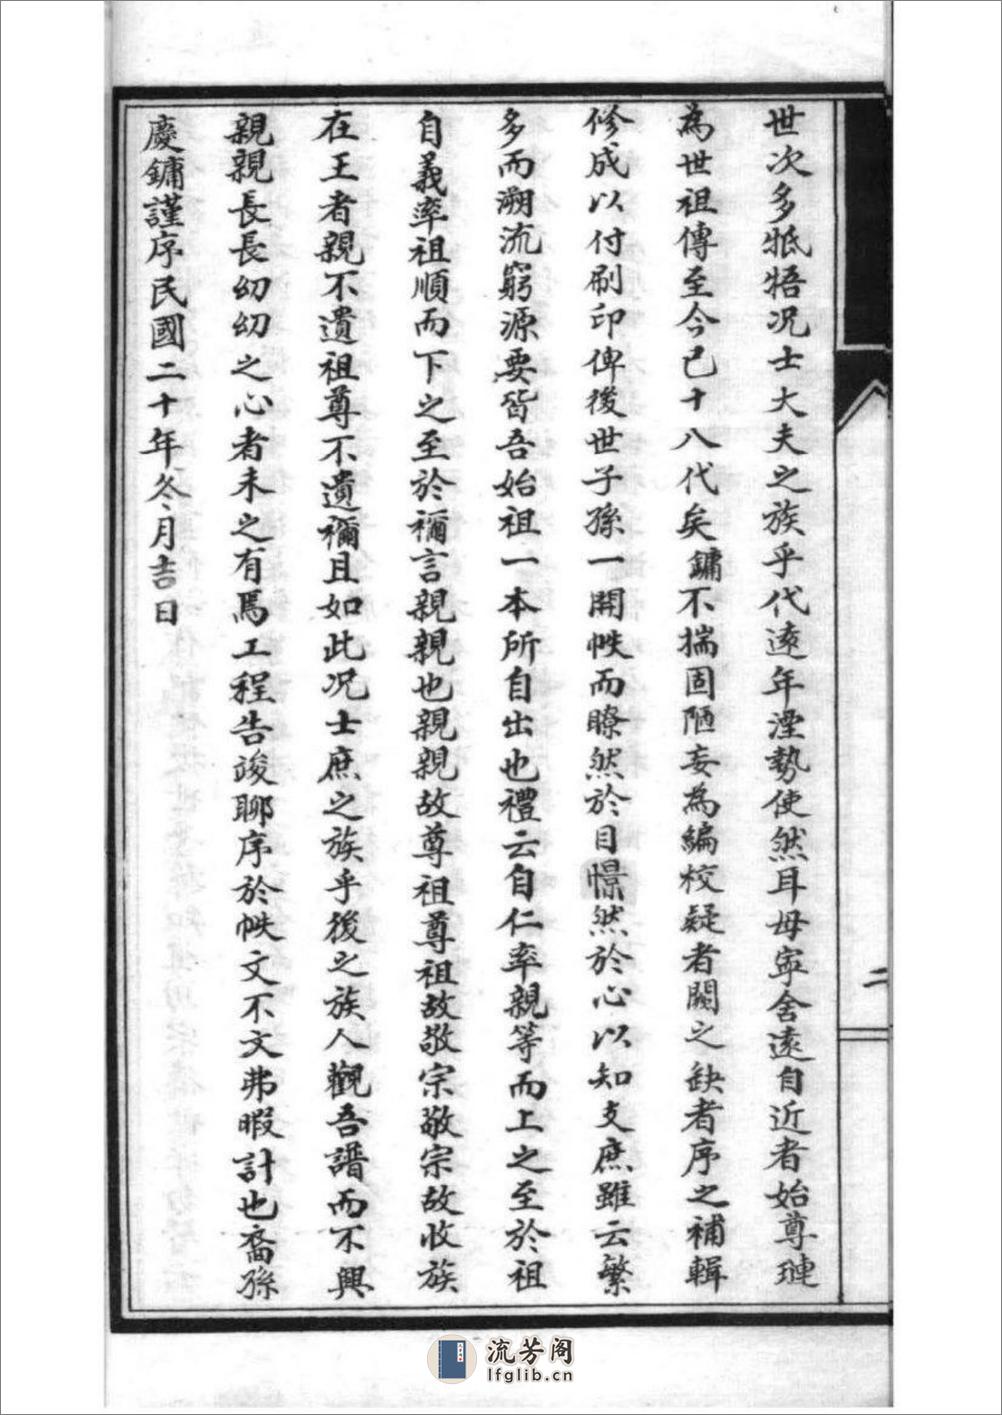 世次多牴牾况士大夫之族乎代遠年湮勢使然耳毋寧舍遠自近者始尊璉
為世祖傳至今已十八代矣鏞不揣固陋妄為編校疑者闕之缺者序之補輯
修成以付刷印俾後世子孫一開帙而瞭然於目憬然於心以知支庶雖云繁
多而溯流窮源要皆吾始祖一本所自出也禮云自仁率親等而上之至於祖
自義率祖順而下之至於禰言親親也親親故尊祖尊祖故敬宗敬宗故收族
在王者親不遺祖尊不遺禰且如此况士庶之族乎後之族人觀吾譜而不興
親親長長幼幼之心者未之有焉工程告竣聊序於帙文不文弗暇計也裔孫
慶鏞謹序民國二十年冬月吉日
二
流芳阁
lfglib.cn